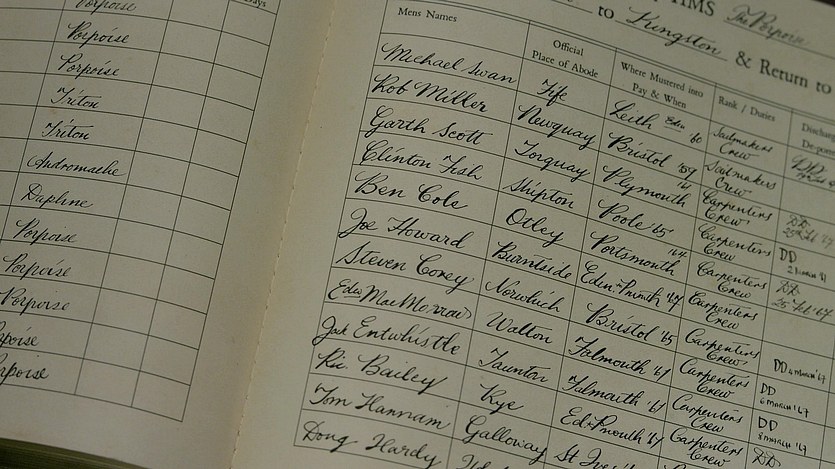 Porpoise
Porpoise
Porpoise
Triton
Triton
Andromache
Daphne
Porpoise
Porpoise
Porpoise
HMS The Porporn
to Kingston & Return to
Mens Names
Official
Place of Abode
Where Mustered into
Pay & When
Rank / Duties
Michael Swan Fife Leith Edin '60 Sailmakers Crew
Rob Miller Newquay Bristol '59 Sailmakers Crew
Garth Scott Torquay Plymouth '61 Carpenters Crew
Clinton Fish Shipton Poole '65 Carpenters Crew DD
Ben Cole Otley Portsmouth '64 Carpenters Crew
Joe Howard Burntside Carpenters Crew
Steven Corey Norwich Bristol '65 Carpenters Crew DD 4 March '67
Edw MacMorrow Walton Falmouth '61 Carpenters Crew DD 6 March '67
Jak Entwhistle Taunton Falmouth '61 Carpenters Crew DD 8 March '67
Ric Bailey Rye Carpenters Crew DD
Tom Hannam Galloway
Doug Hardy